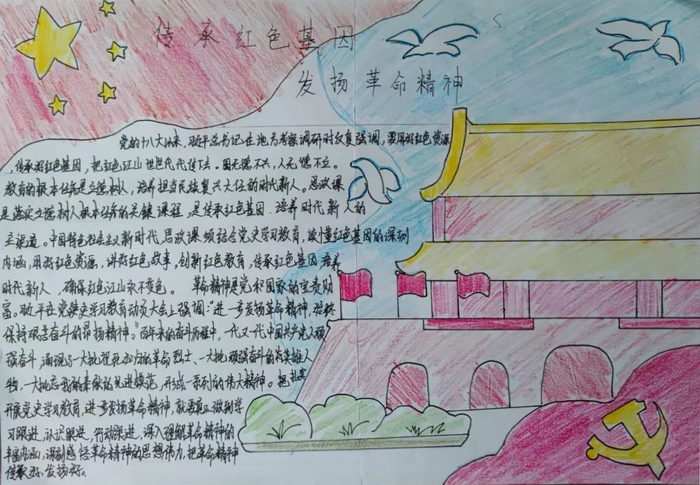 传承红色基因
发扬革命精神
党的十八大以来,习近平总书记在地方考察调研时反复强调,要用好红色资源
,传承好红色基因,把红色江山世世代代传下去。国无德不兴,人无德不立。
教育的根本任务是立德树人,培养担当民族复兴大任的时代新人。思政课
是落实立德树人根本任务的关键课程,是传承红色基因、培养时代新人的
主渠道。中国特色社会主义新时代,思政课须结合党史学习教育,读懂红色基因的深刻
内涵,用好红色资源,讲好红色故事,创新红色教育,传承红色基因,培养
时代新人,确保红色江山永不变色。 革命精神是党和国家的宝贵财
富。习近平在党史学习教育动员大会上强调:"进一步发扬革命精神,始终
保持艰苦奋斗的昂扬精神。"百年来的奋斗历程中,一代又一代中国共产党人顽
强奋斗,涌现了一大批视死如归的革命烈士、一大批顽强奋斗的英雄人
物、一大批忘我奉献的先进模范,形成一系列的伟大精神。
开展党史学习教育,进一步发扬革命精神,就要真正做到学
习跟进、认识跟进、行动跟进,深入理解革命精神的
丰富内涵,深刻感悟革命精神的思想伟力,把革命精神
传承好、发扬好。